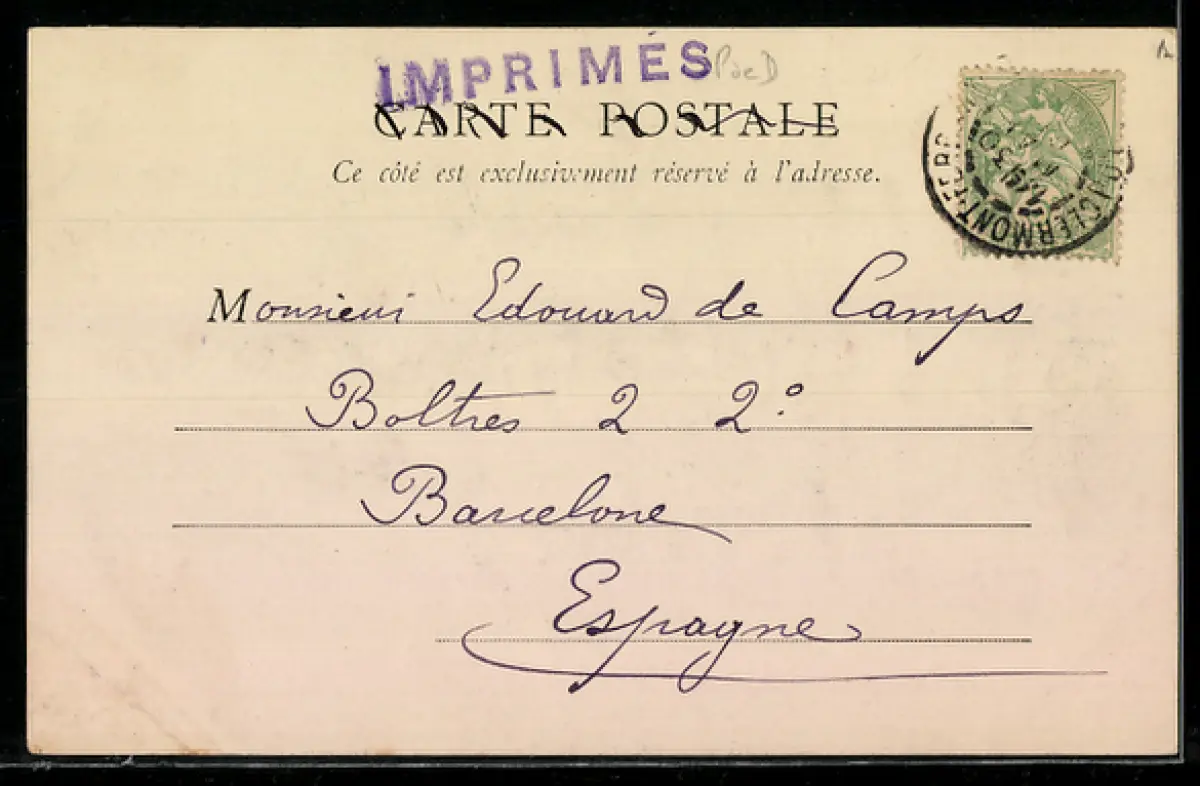 IMPRIMÉS PdeD
CARTE POSTALE
Ce côté est exclusivement réservé à l'adresse.
CLERMONT-FERR
Monsieur Edouard de Camps
Boltres 2 2º
Barcelone
Espagne